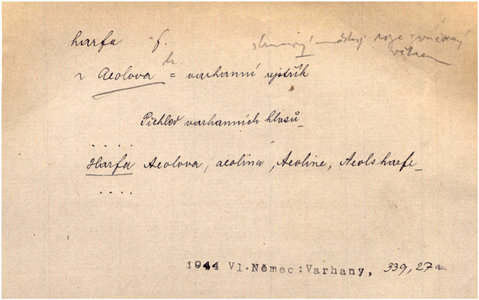 harfa f.
strunný nástroj rozezvučený
větrem
~ Aeolova h = varhanní rejstřík
Přehled varhanních hlasů
. . . .
Harfa Aeolova, aeolina, Aeoline, Aeolsharfe
. . . .
1944 Vl.Němec:Varhany, 339,27a